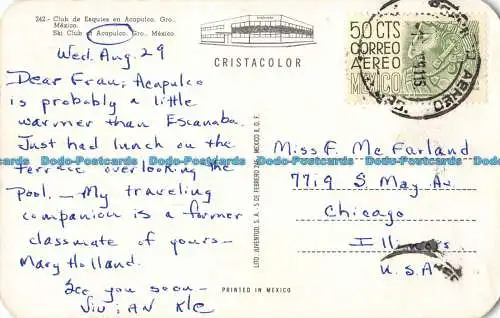 242.- Club de Esquies en Acapulco, Gro.,
México.
Ski Club at Acapulco, Gro., México
CRISTACOLOR
50 CTS
CORREO
AEREO
MEXICO
AEREO
Wed. Aug. 29
Dear Fran; Acapulco
is probably a little
warmer than Escanaba.
Just had lunch on the
terrace overlooking the
pool. — My traveling
companion is a former
classmate of yours—
Mary Holland.
See you soon—
Vivian
LITO JUVENTUD, S. A. - 5 DE FEBRERO MEXICO 8, D. F.
PRINTED IN MEXICO
Miss F. McFarland
7719 S. May Av.
Chicago
Illinois
U.S.A.
Dodo-Postcards Dodo-Postcards Dodo-Postcards Dodo-Postcards
Dodo-Postcards Dodo-Postcards Dodo-Postcards Dodo-Postcards